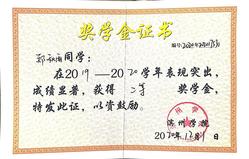 奖学金证书
同学：
在2019—2020学年表现突出，
成绩显著，获得 二等 奖学金，
特发此证，以资鼓励。
滨州学院
2020年12月1日